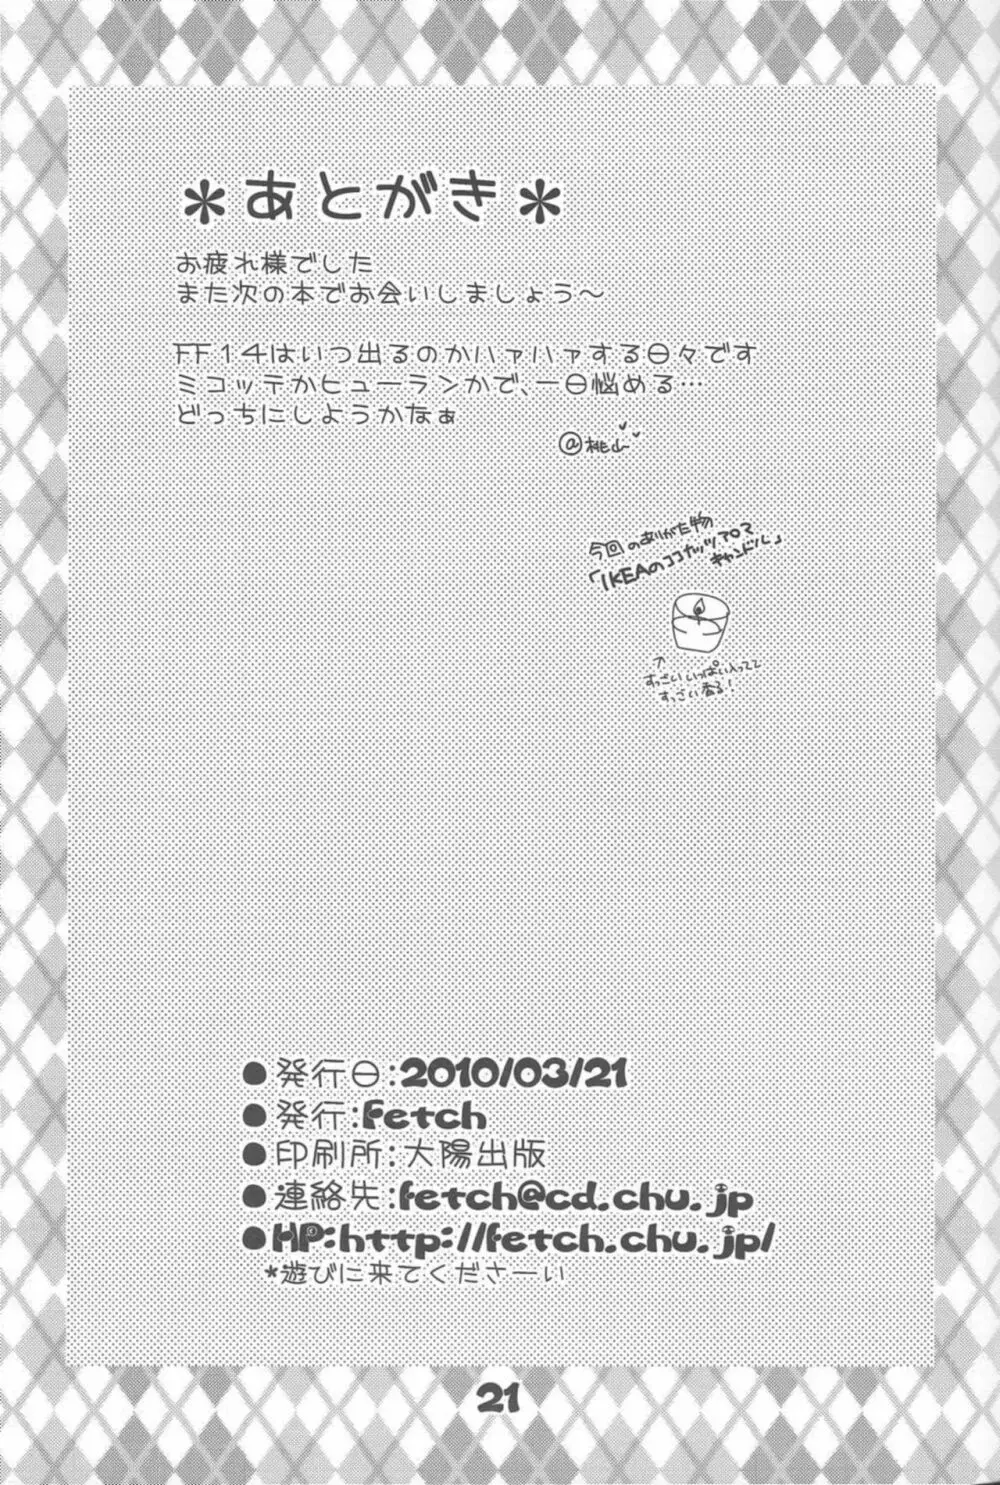 ＊あとがき＊
お疲れ様でした
また次の本でお会いしましょう～
FF14はいつ出るのかハァハァする日々です
ミコッテかヒューランかで、一日悩める…
どっちにしようかなぁ
@桃山
今回のありがた物
「IKEAのココナッツアロマ
キャンドル」
↑
すっごいいっぱい入ってて
すっごい香る！
●発行日:2010/03/21
●発行:fetch
●印刷所:大陽出版
●連絡先:fetch@cd.chu.jp
●HP:http://fetch.chu.jp/
*遊びに来てくださーい
21